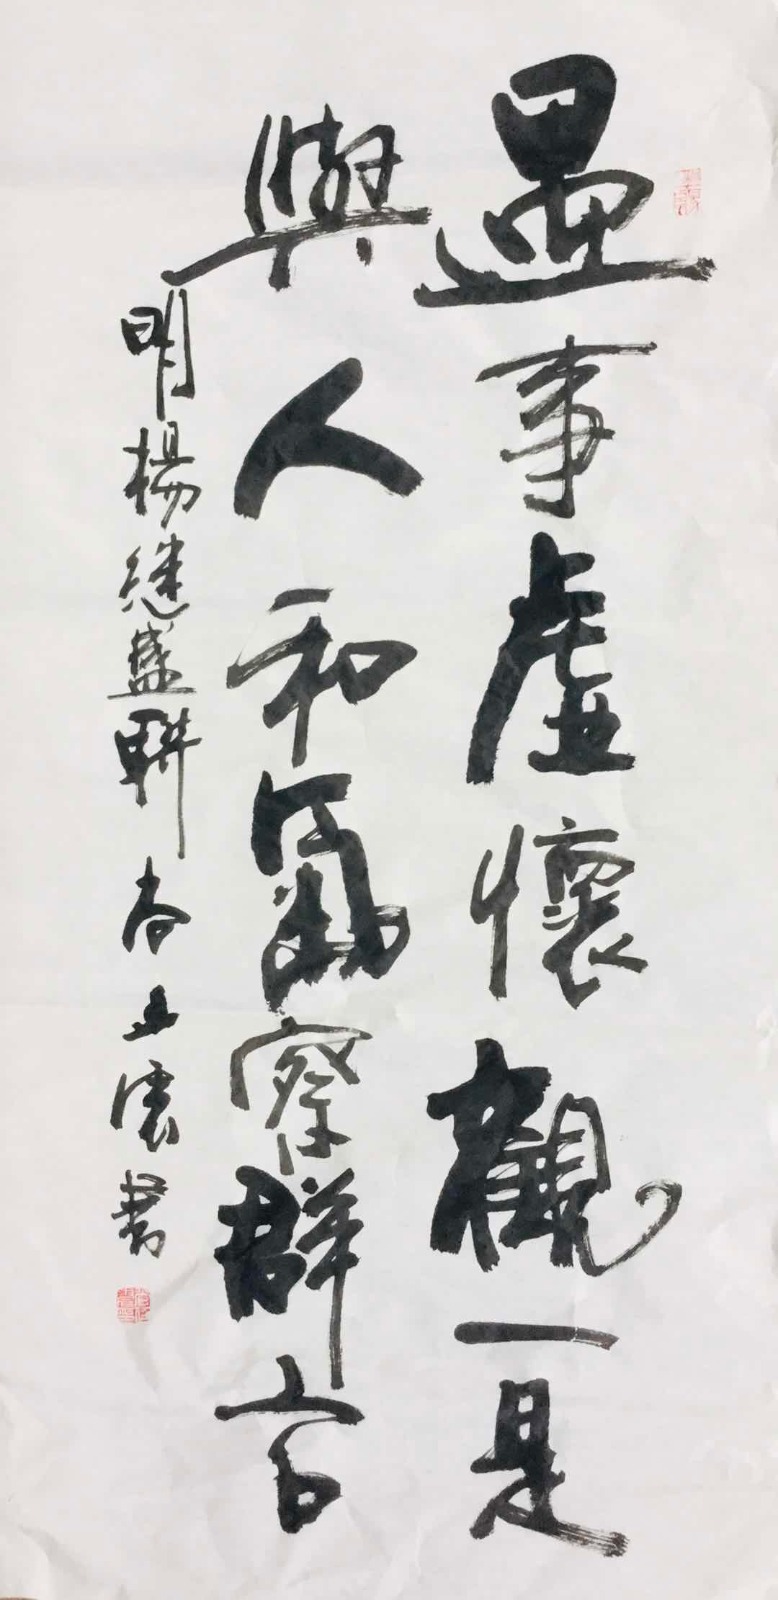 遇事虛懷觀一是
與人和氣察群言
明楊继盛聯 春立雲書